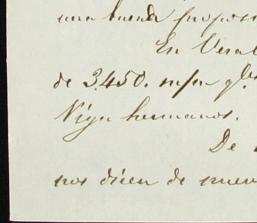 una buena propor
En Vera
de 3.450.
Vega hermanos.
De
nos dicen de nuev